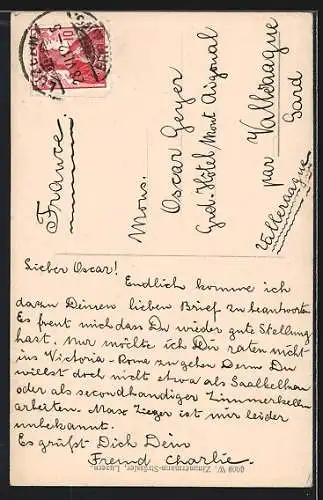 France.
Mons.
Oscar Geyer
Grd. Hôtel Mont Aigonal
par Valléraugue
Gard
Valleraugue
Lieber Oscar!
Endlich komme ich
dazu Deinen lieben Brief zu beantworten
Es freut mich dass Du wieder gute Stellung
hast, nur möchte ich Dir raten nicht
ins Victoria-Rome zu gehen Denn Du
willst doch nicht etwa als Saalkellner
oder als secondhandiger Zimmerkellner
arbeiten. Max Zieger ist mir leider
unbekannt.
Es grüßt Dich Dein
Freund Charlie.
W. Zimmermann-Strässler, Luzern.